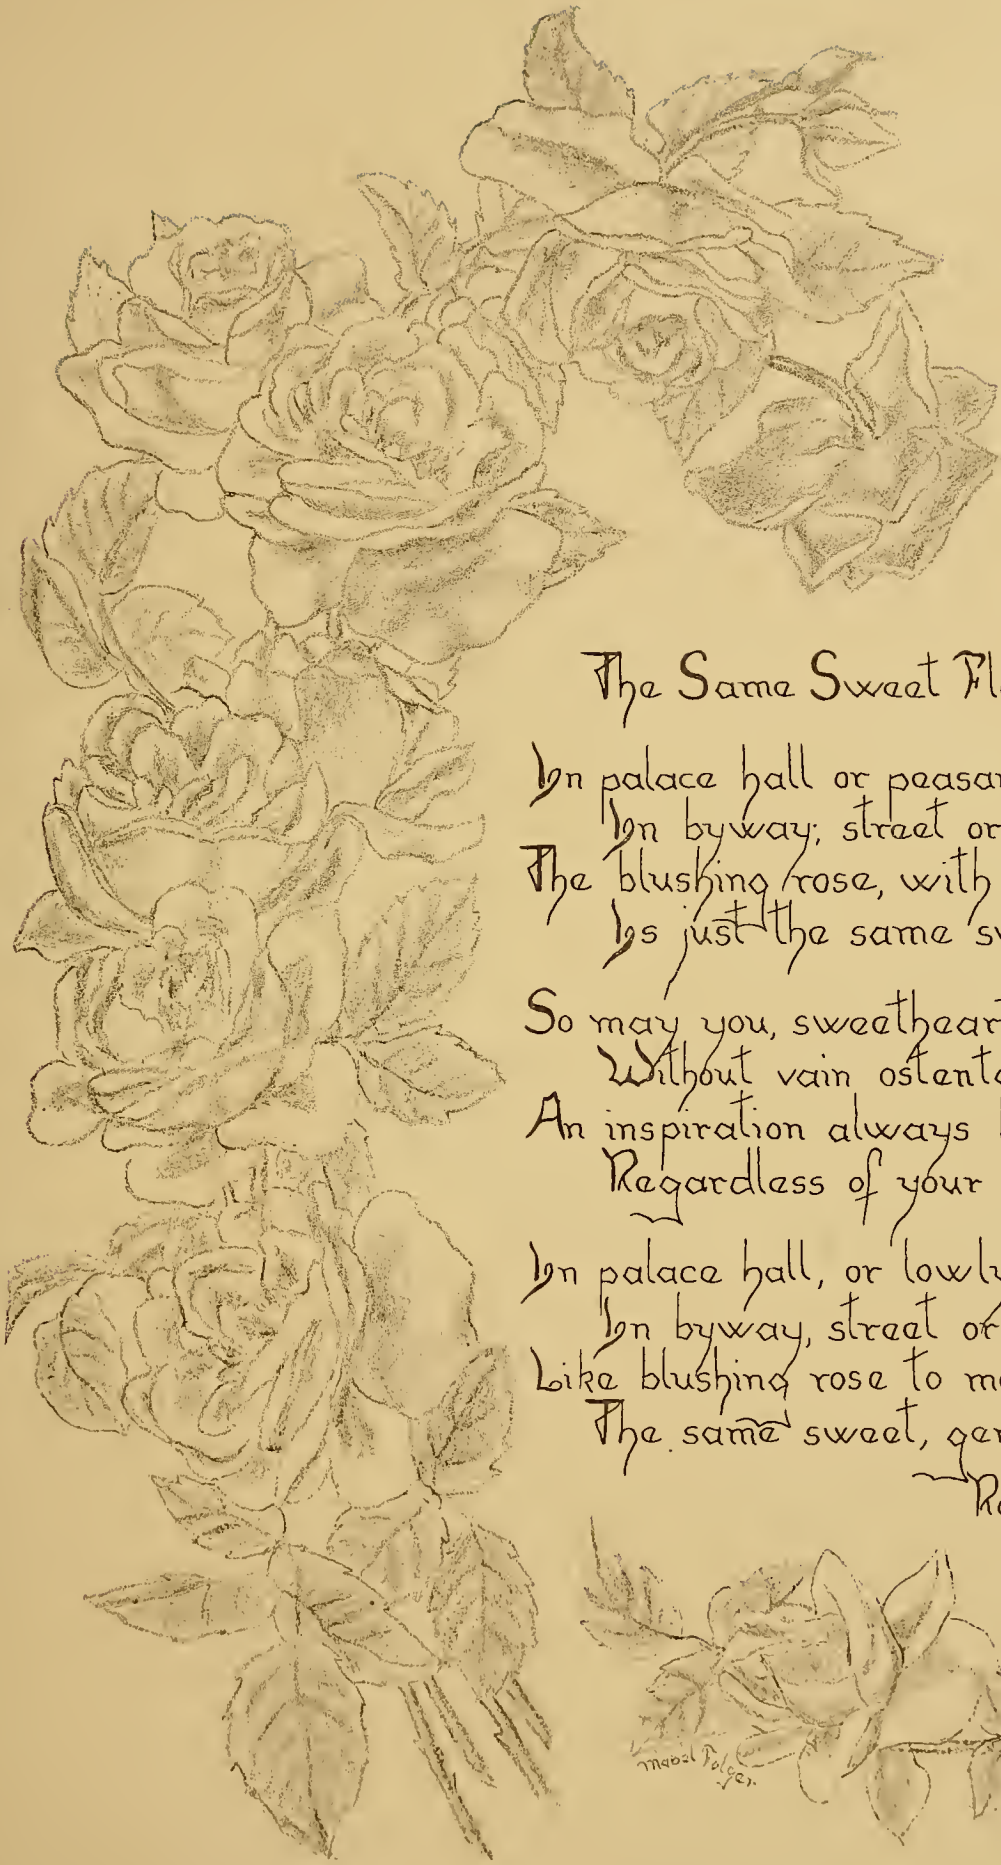 The Same Sweet Fl
In palace hall or peasan
In byway, street or
The blushing rose, with
Is just the same sw
So may you, sweetheart
Without vain ostenta
An inspiration always
Regardless of your
In palace hall, or lowly
In byway, street or
Like blushing rose to m
The same sweet, gen
R
Mabel Folger.